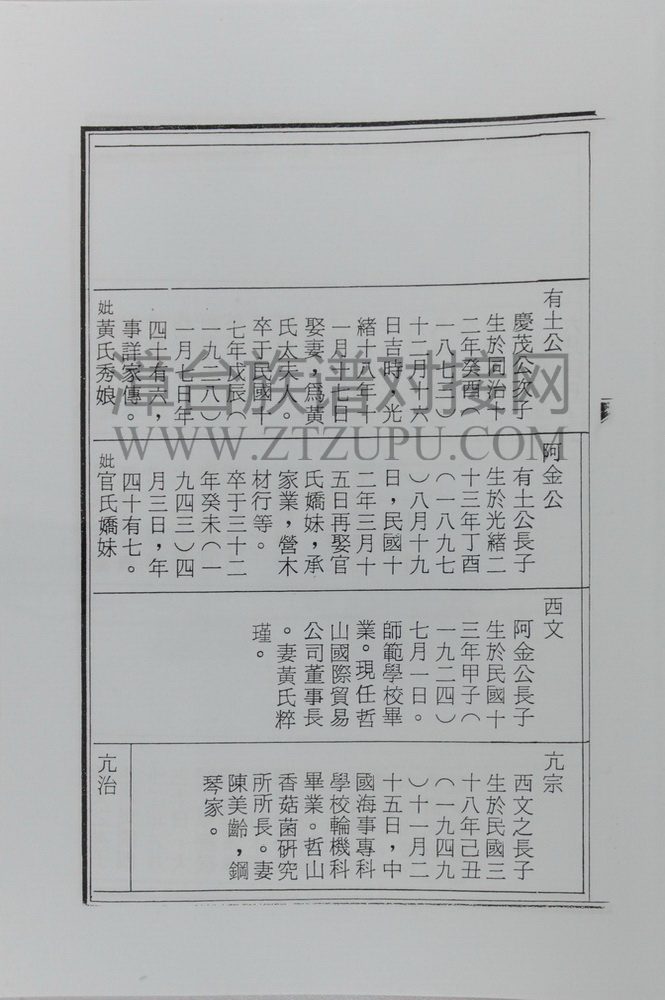 有土公
慶茂公次子
生於同治十
二年癸酉（
一八七三）
十二月十六
日吉時，光
緒十八年十
一月十七日
娶妻，爲黃
氏太夫人。
卒于民國十
七年戊辰（
一九二八）
一月七日年
四十有六，
事詳家傳。
妣黃氏秀娘
阿金公
有土公長子
生於光緒二
十三年丁酉
（一八九七
）八月十九
日，民國十
二年三月十
五日再娶官
氏嬌妹，承
家業，營木
材行等。
卒于三十二
年癸未（一
九四三）四
月三日，年
四十有七。
妣官氏嬌妹
西文
阿金公長子
生於民國十
三年甲子（
一九二四）
七月一日。
師範學校畢
業。現任哲
山國際貿易
公司董事長
。妻黃氏粹
瑾。
亢宗
西文之長子
生於民國三
十八年己丑
（一九四九
）十一月二
十五日，中
國海事專科
學校輪機科
畢業。哲山
香菇菌研究
所所長。妻
陳美齡，鋼
琴家。
亢治
漳台族谱对接网
WWW.ZTZUPU.COM